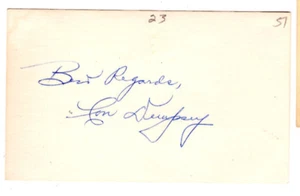 23 51
Best Regards,
Con Dempsey